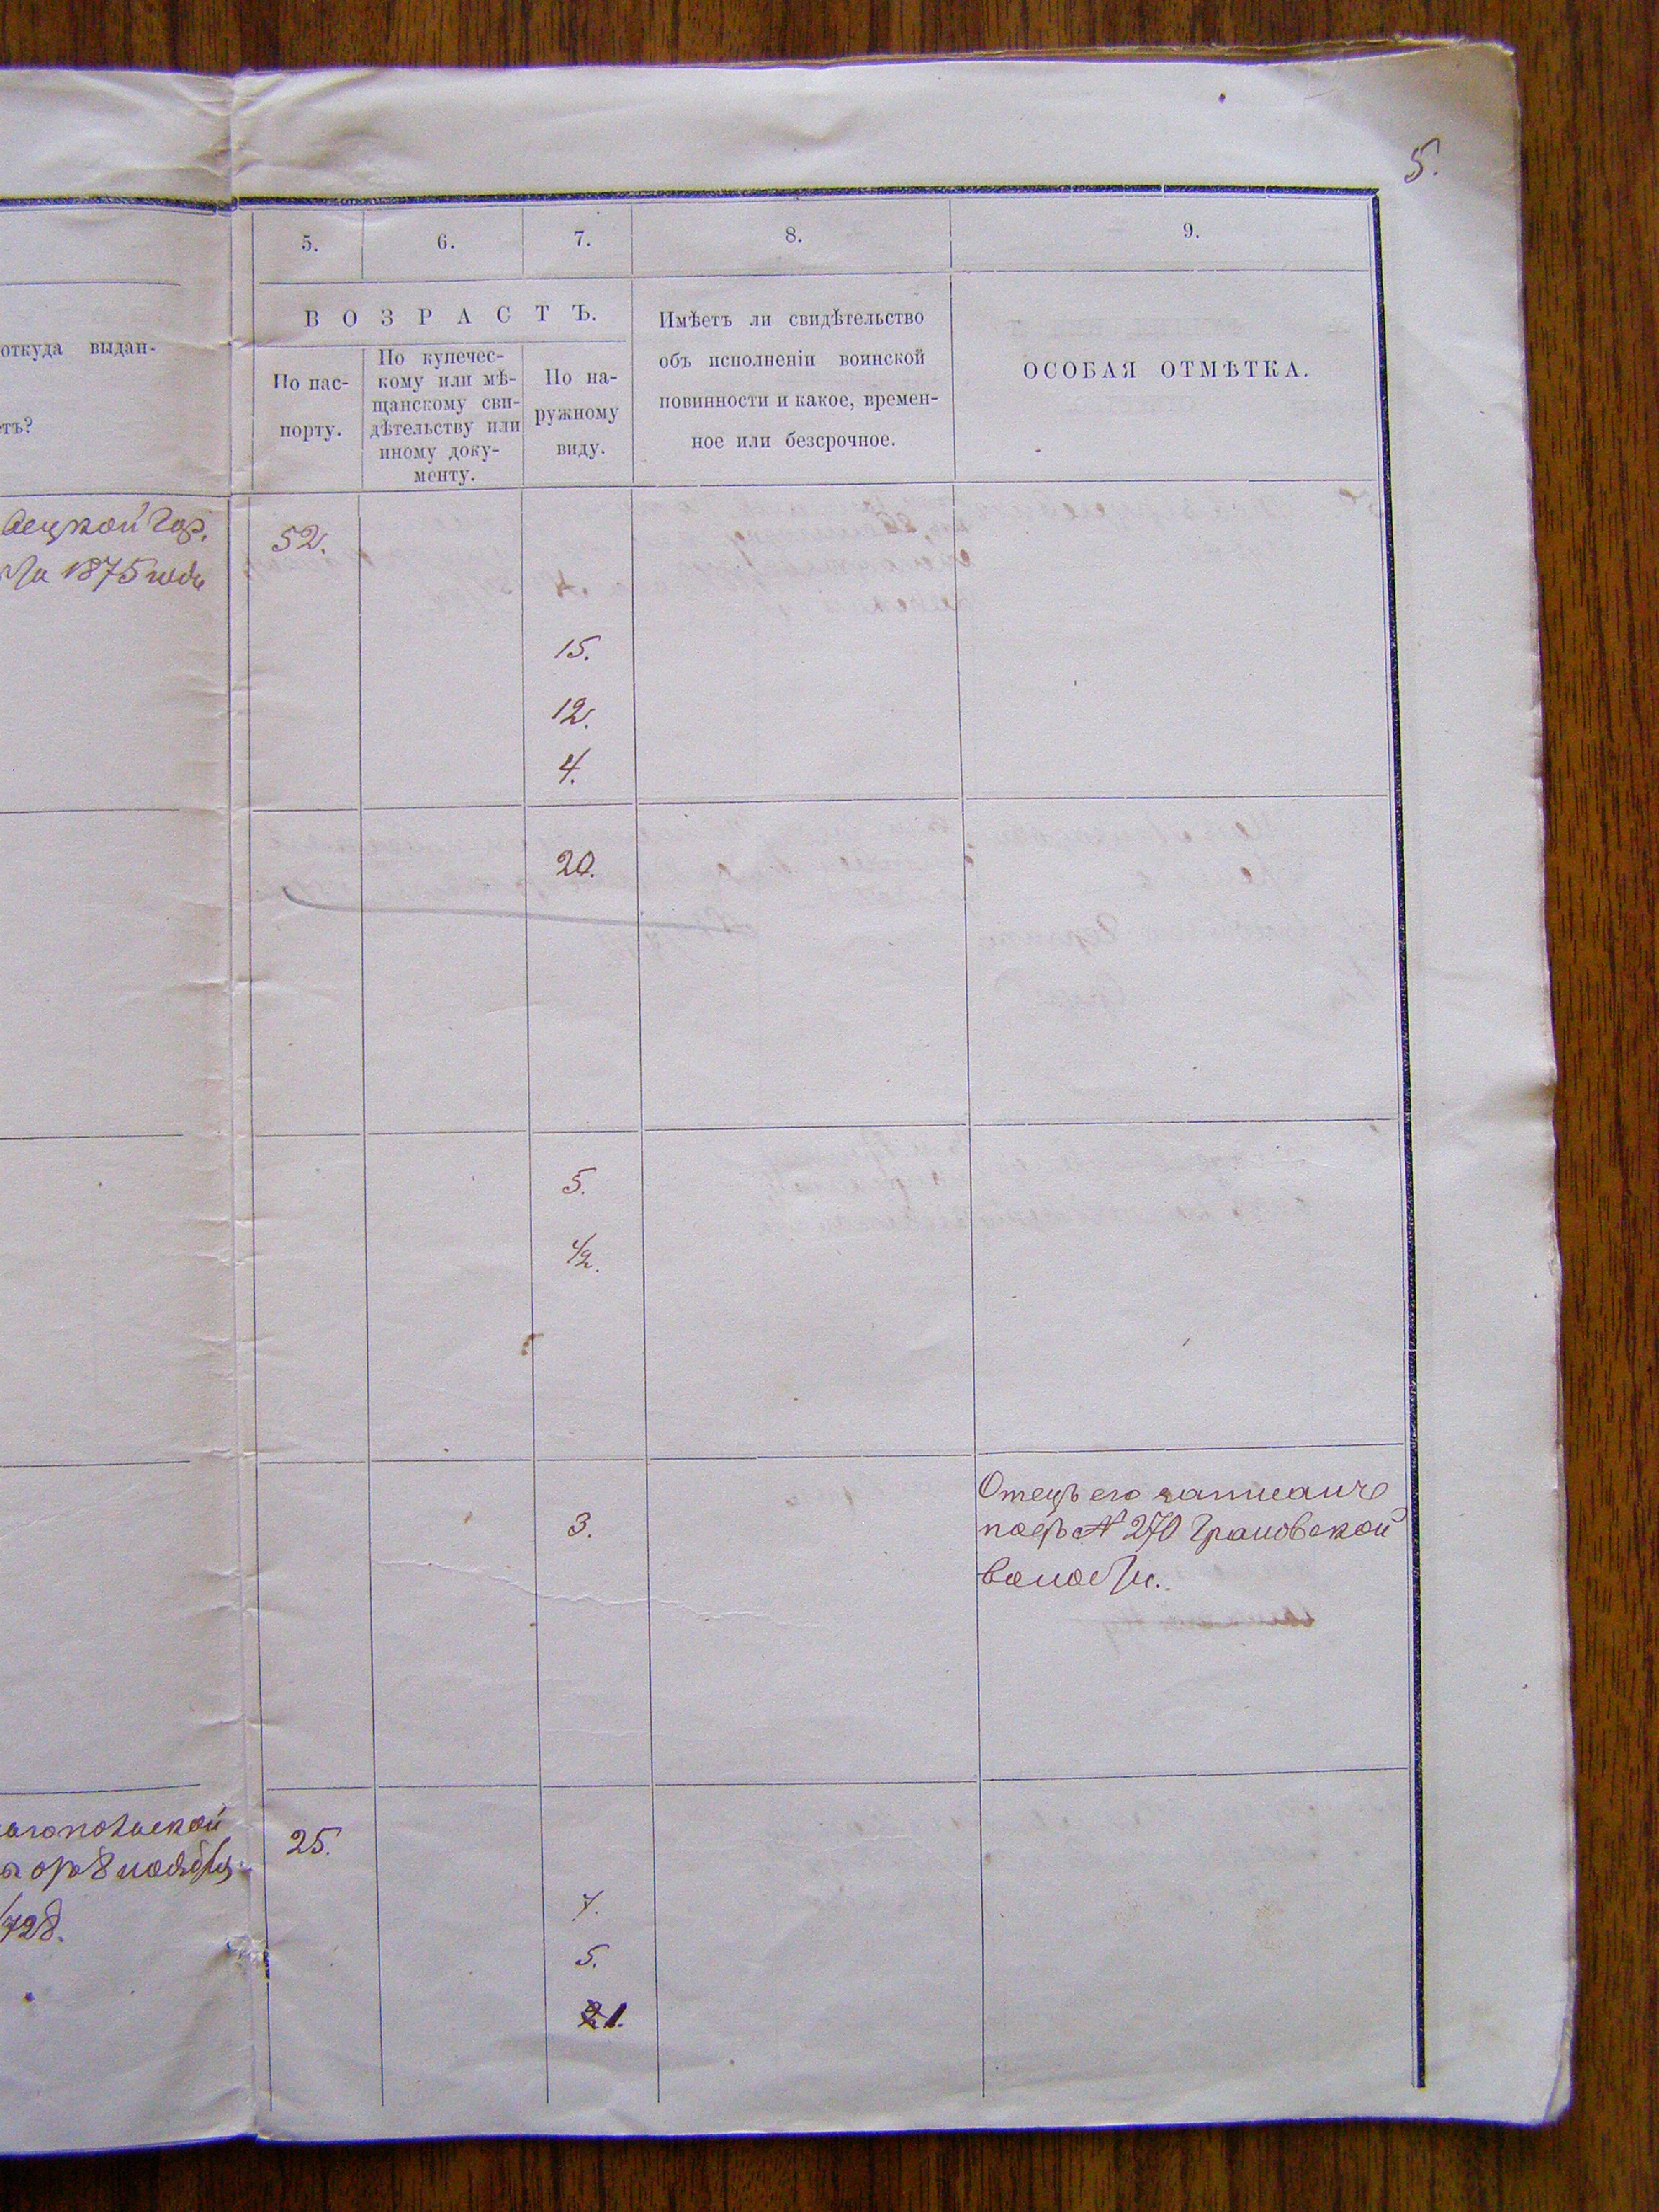 5.
5. 6. 7. 8. 9.
откуда выдан-
етъ?
ВОЗРАСТЪ.
По пас-
порту.
По купечес-
кому или мѣ-
щанскому сви-
дѣтельству или
иному доку-
менту.
По на-
ружному
виду.
Имѣетъ ли свидѣтельство
объ исполненіи воинской
повинности и какое, времен-
ное или безсрочное.
ОСОБАЯ ОТМѢТКА.
52.
1875 года
15.
12.
4.
20.
5.
1/2.
Отецъ его записанъ
3.
подъ № 270
волости.
25.
8 ноября
7.
5.
1.